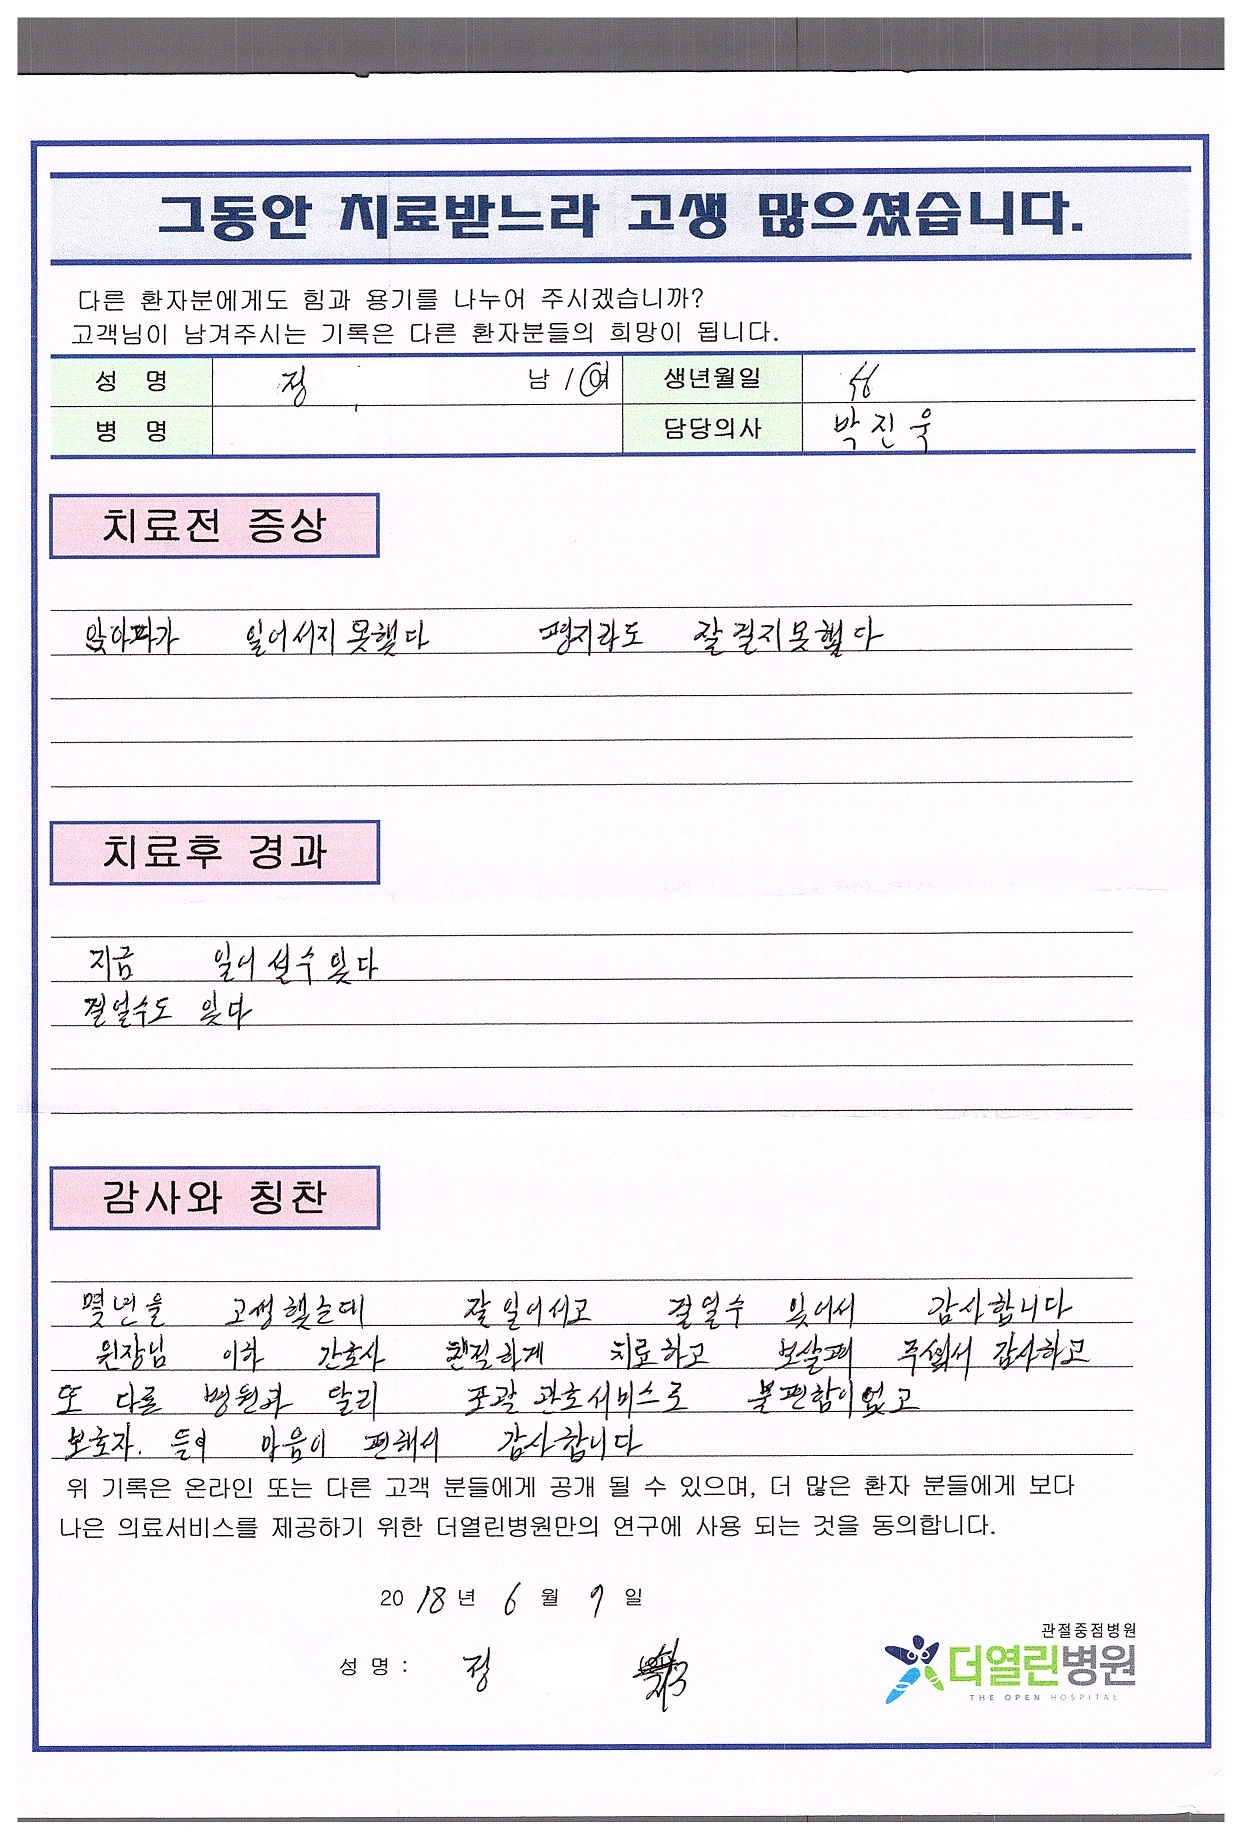 그동안 치료받느라 고생 많으셨습니다.
다른 환자분에게도 힘과 용기를 나누어 주시겠습니까?
고객님이 남겨주시는 기록은 다른 환자분들의 희망이 됩니다.
성 명 정 남 / 여 생년월일
병 명 담당의사 박진욱
치료전 증상
앉아따가 일어서지 못했다 평지라도 잘 걷지못했다
치료후 경과
지금 일어설수 잇다
걸얼수도 잇다
감사와 칭찬
몇년을 고생했는데 잘 일어서고 걸얼수 잇어서 감사합니다
원장님 이하 간호사 친절하게 치료하고 보살펴 주셔서 감사하고
또 다른 병원과 달리 포괄 관호서비스로 불편함이없고
보호자. 들이 마음이 편해서 감사합니다
위 기록은 온라인 또는 다른 고객 분들에게 공개 될 수 있으며, 더 많은 환자 분들에게 보다
나은 의료서비스를 제공하기 위한 더열린병원만의 연구에 사용 되는 것을 동의합니다.
2018년 6월 9일
성 명 : 정
관절중점병원
더열린병원
THE OPEN HOSPITAL